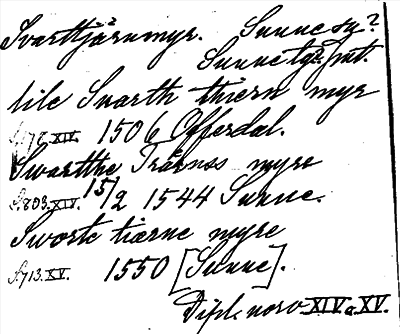 Svarttjärnmyr. Sunne sn?
Sunne tgs jmt.
lilc Suarth thiern myr
S.178.XIV. 1506 Offerdal.
Swartthe Triärnss myre
S.803.XIV. 15/2 1544 Sunne.
Sworte tiærne myre
S.713.XV. 1550 [Sunne].
Dipl. norv. XIV o. XV.